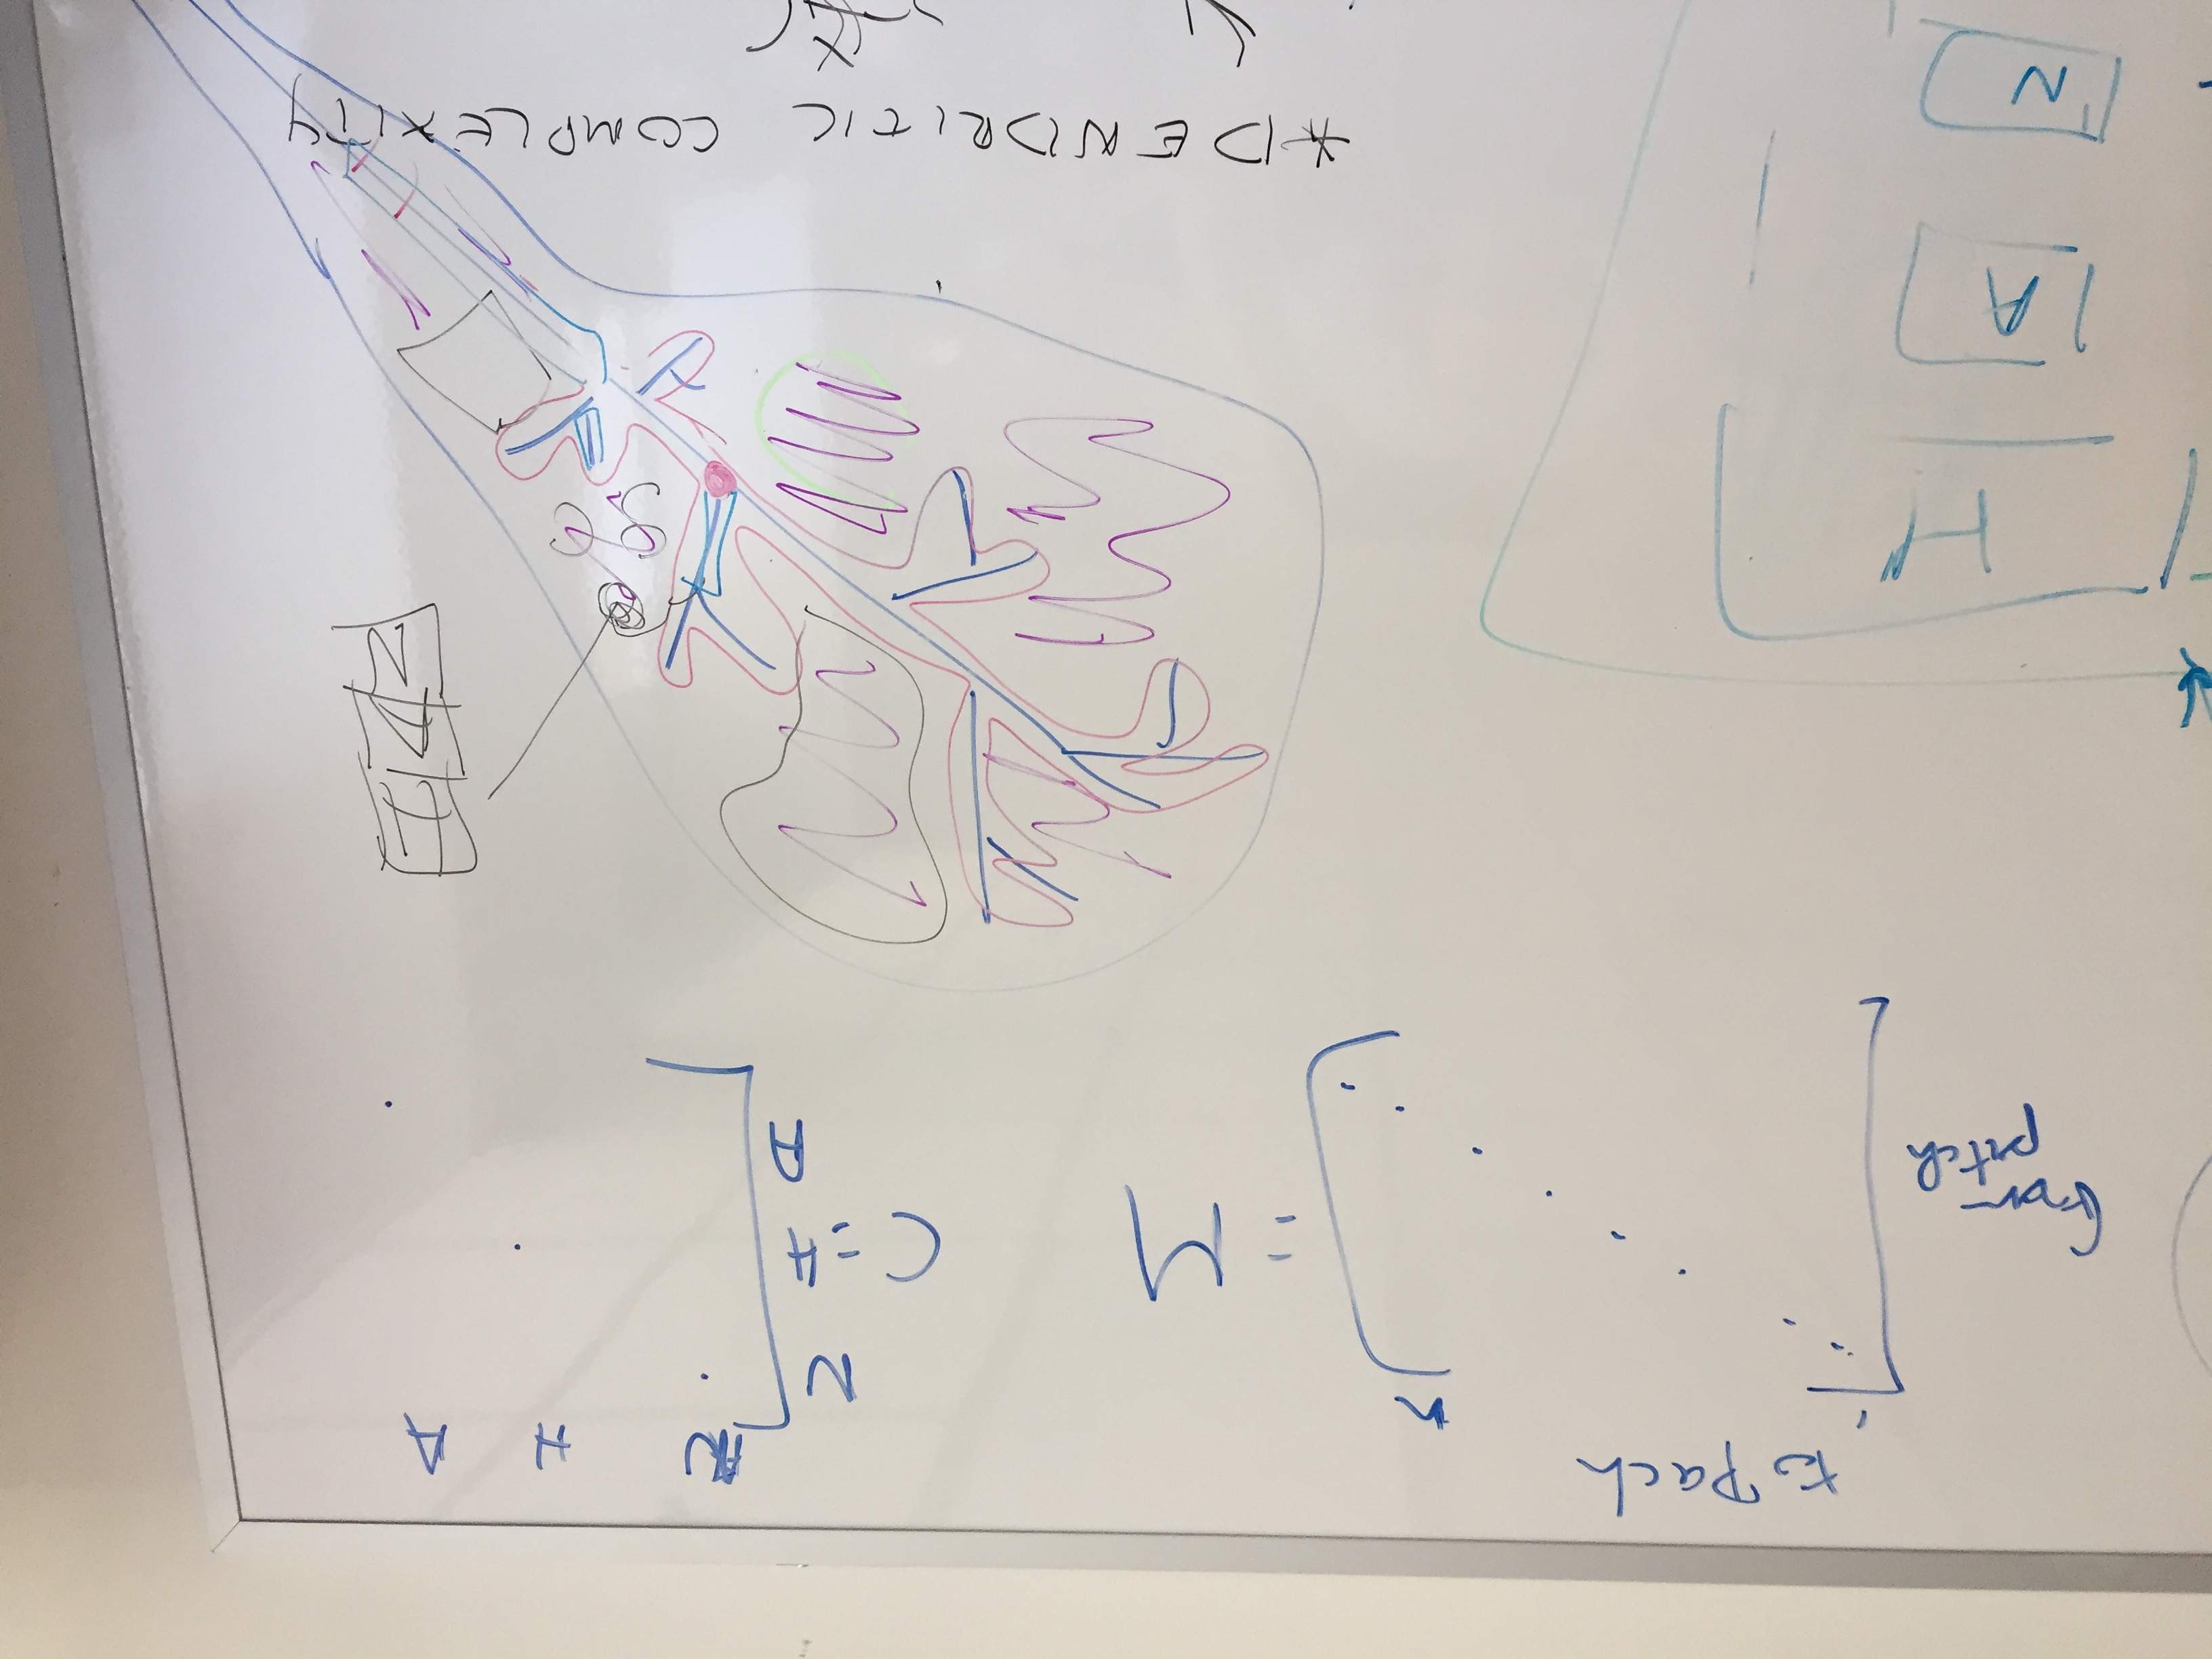 to Pach
1 n
from
patch
= M
N H A
N
C = H
A
H
A
N
H
A
N
*DENDRITIC COMPLEXITY